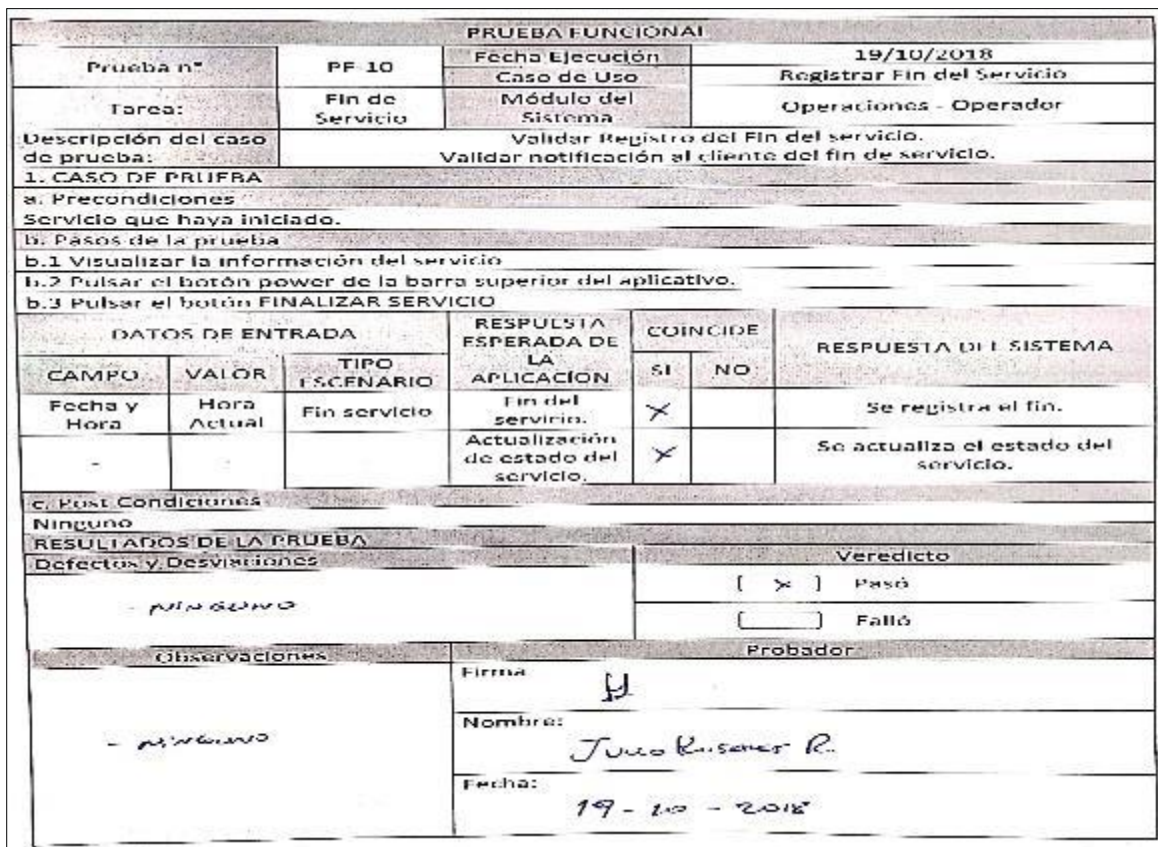 PRUEBA FUNCIONAL
Prueba n°
PF-10
Fecha Ejecución
19/10/2018
Caso de Uso
Registrar Fin del Servicio
Tarea:
Fin de
Servicio
Módulo del
Sistema
Operaciones - Operador
Descripción del caso
de prueba:
Validar Registro del Fin del servicio.
Validar notificación al cliente del fin de servicio.
1. CASO DE PRUEBA
a. Precondiciones
Servicio que haya iniciado.
b. Pasos de la prueba
b.1 Visualizar la información del servicio
b.2 Pulsar el botón power de la barra superior del aplicativo.
b.3 Pulsar el botón FINALIZAR SERVICIO
DATOS DE ENTRADA
RESPUESTA
ESPERADA DE
LA
APLICACIÓN
COINCIDE
RESPUESTA DEL SISTEMA
CAMPO
VALOR
TIPO
ESCENARIO
SI
NO
Fecha y
Hora
Hora
Actual
Fin servicio
Fin del
servicio.
X
Se registra el fin.
-
-
Actualización
de estado del
servicio.
X
Se actualiza el estado del
servicio.
c. Post Condiciones
Ninguno
RESULTADOS DE LA PRUEBA
Defectos y Desviaciones
Veredicto
- NINGUNO
[ X ] Pasó
[ ] Falló
Observaciones
Probador
- NINGUNO
Firma
Nombre:
R.
Fecha:
19-10-2018